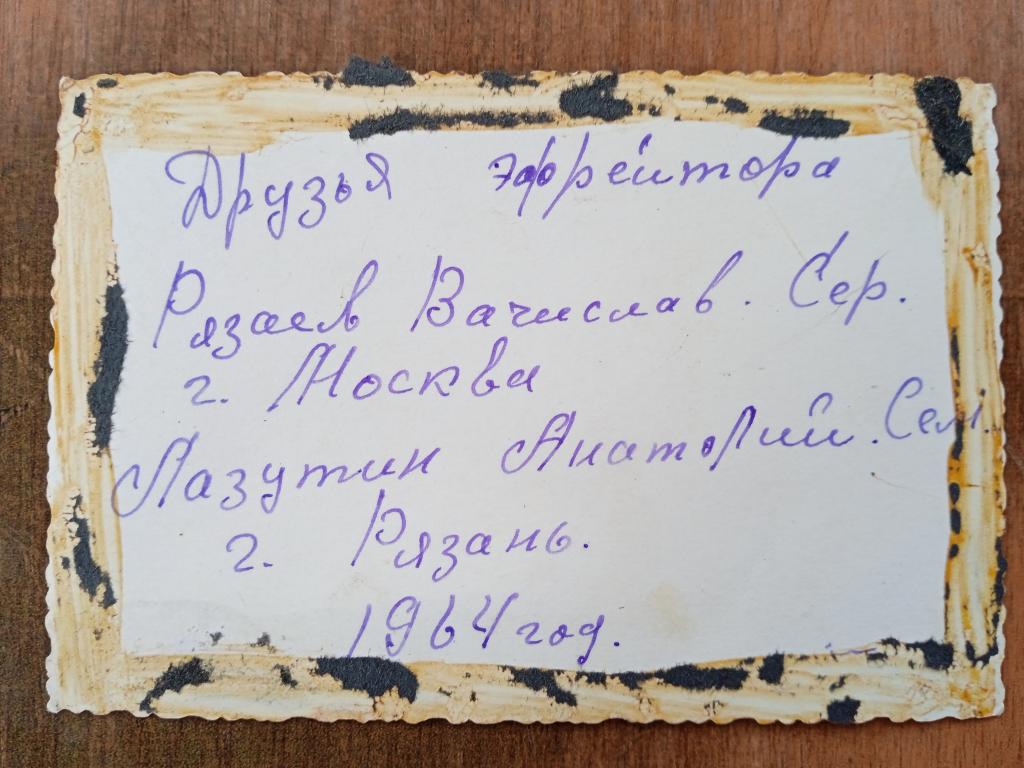 Друзья эфрейтора
Рязаев Вачислав. Сер.
г. Москва
Лазутин Анатолий. Сем.
г. Рязань.
1964 год.